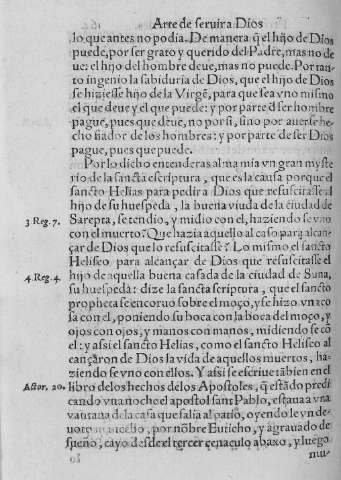 Arte de seruir a Dios
lo, que antes no podia. De manera q̃ el hijo de Dios
puede, por ser grato y querido del Padre, mas no de
ue: el hijo del hombre deue, mas no puede. Por tan-
to ingenio la sabiduria de Dios, que el hijo de Dios
se hiziesse hijo de la Virgẽ, para que sea vno mismo
el que deue y el que puede: y por parte d̃ ser hombre
pague, pues que deue, no por si, sino por auerse he-
cho fiador de los hombres: y por parte de ser Dios
pague, pues que puede.
Por lo dicho entenderas alma mia vn gran myste
rio de la sancta escriptura, que es la causa porque el
sancto Helias para pedir a Dios que resuscitasse al
hijo de su huespeda, la buena viuda de la ciudad de
3 Reg. 7. Sarepta, se tendio, y midio con el, haziendo se vno
con el muerto? Que hazia aquello al caso para alcan-
çar de Dios que lo resuscitasse? Lo mismo el sancto
Heliseo para alcançar de Dios que resuscitasse el
4 Reg. 4. hijo de aquella buena casada de la ciudad de Suna,
su huespeda: dize la sancta scriptura, que el sancto
propheta se encoruo sobre el moço, y se hizo vna co
sa con el, poniendo su boca con la boca del moço, y
ojos con ojos, y manos con manos, midiendo se cõ
el: y assi el sancto Helias, como el sancto Heliseo al
cançaron de Dios la vida de aquellos muertos, ha-
ziendo se vno con ellos. Y assi se escriue tãbien en el
Actor. 20. libro de los hechos de los Apostoles, q̃ estãdo predi
cando vna noche el apostol sant Pablo, estaua a vna
ventana de la casa que salia al patio, oyendo le vn de-
uoto mancebo, por nõbre Euticho, y agrauado de
sueño, cayo desde el tercer cenaculo abaxo, y luego